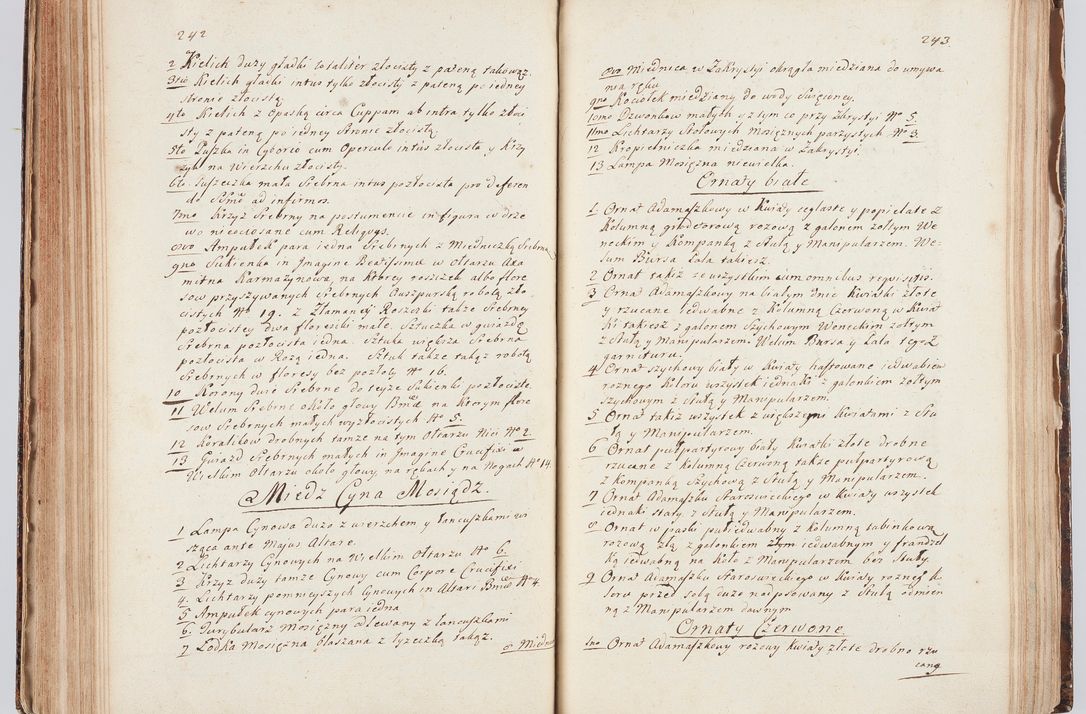 242
2 Kielich duży gładki totaliter złocisty z pateną takowąż.
3tio Kielich gładki intus tylko złocisty z pateną po iedney
stronie złocistą
4to Kielich z Opaską circa Cuppam ab intra tylko złoci
sty z pateną po iedney stronie złocistą
5to Puszka in Cyborio cum Operculo intus złocista y Krzy
żyk na Wierzchu złocisty.
6to Puszeczka mała Srebrna intus pozłocista pro deferen
do SSmo ad infirmos.
7mo Krzyż Srebrny na postumencie in figura w drze
wo nieociosane cum Reliquys.
8vo Ampułek para iedna Srebrnych z Miedniczką Srebrną
9no Sukienka in Imagine Beatissimæ w Ołtarzu Axa
mitna Karmazynowa, na ktorey roszczek albo flore
sow przyszywanych srebrnych Auszpurską robotą zło
cistych No 19. z Złamaney Roszczki także Srebrney
pozłocistey dwa floreski małe. Sztuczka w gwiazdę
Srebrna pozłocista iedna. sztuka większa Srebrna
pozłocista w Rożą iedna. Sztuk także takąż robotą
Srebrnych w floresy bez pozłoty No 16.
10 Korony dwie Srebrne do teyże Sukienki pozłociste
11 Welum Srebrne około głowy Bmæ na ktorym flore
sow Srebrnych małych wyzłocistych No 5.
12 Koralikow drobnych tamże na tym Ołtarzu Nici No 2.
13 Gwiazd Srebrnych małych in Imagine Crucifixi w
Wielkim Ołtarzu około głowy na rękach y na Nogach No 14.
Miedz Cyna Mosiądz.
1 Lampa Cynowa duża z wierzchem y łancuszkami wi
sząca ante Majus Altare.
2 Lichtarzy Cynowych na Wielkim Ołtarzu No 6.
3 Krzyż duży tamże Cynowy cum Corpore Crucifixi
4. Lichtarzy pomnieyszych Cynowych in Altari Bmæ No 4.
5 Ampułek cynowych para iedna
6. Turybularz Mosiężny odlewany z łancuszkami
7 Łodka Mosiężna blaszana z łyżeczką takąż.
8 Miedni
243
8vo Miednica w Zakrystyi okrągła miedziana do umywa
nia rąk
9no Kociołek miedziany do wody Swięconey.
10mo Dzwonkow małych z tym co przy Zakrystyi No 5.
11mo Lichtarzy Stołowych Mosiężnych parzystych No 3.
12 Kropielniczka miedziana w Zakrystyi.
13 Lampa Mosiężna niewielka.
Ornaty białe
1 Ornat Adamaszkowy w Kwiaty ceglaste y popielate z
Kolumną grodetorową rożową z galonem żołtym We
neckim y Kompanką z Stułą y Manipularzem. We-
lum Bursa Pala takież.
2 Ornat takiż ze wszystkim cum omnibus requisitis.
3 Ornat Adamaszkowy na białym dnie Kwiatki złote
y rzucane iedwabne z Kolumną Czerwoną w Kwia
tki takież z galonem Szychowym Weneckim żołtym
z Stułą y Manipularzem. Welum Bursa y Pala tegoż
garnituru.
4 Ornat szychowy biały w Kwiaty haftowane iedwabiem
rożnego Koloru wszystek iednaki z galonkiem żołtym
szychowym z Stułą y Manipularzem.
5 Ornat takiż wszystek z większemi Kwiatami z Stu
łą y Manipularzem.
6 Ornat pułpartyrowy biały Kwiatki złote drobne
rzucane z Kolumną Czerwoną także pułpartyrową
z Kompanką Szychową z Stułą y Manipularzem.
7 Ornat Adamaszku Staroswieckiego w Kwiaty wszystek
iednaki stary z Stułą y Manipularzem.
8 Ornat w paski pułiedwabny z Kolumną tabinkową
rożową złą z galonkiem złym iedwabnym y frandzel
ką iedwabną na Koło z Manipularzem bez Stuły.
9 Ornat Adamaszku Staroswieckiego w Kwiaty rożnego K
loru przed sobą dużo naipsowany z Stułą odmien
ną z Manipularzem dawnym
Ornaty Czerwone
1mo Ornat Adamaszkowy rożowy Kwiaty złote drobno rzu
cane